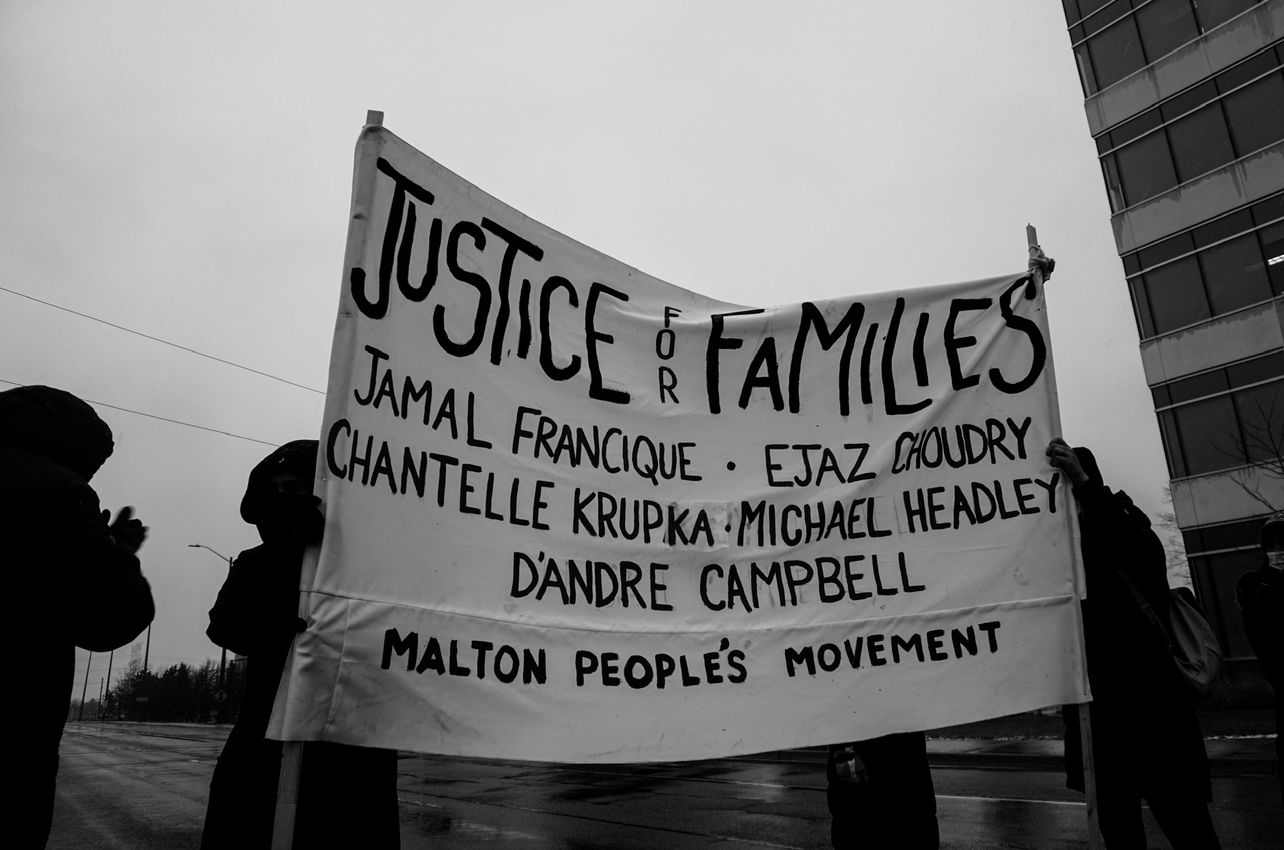 JUSTICE FOR FAMILIES
JAMAL FRANCIQUE · EJAZ CHOUDRY
CHANTELLE KRUPKA · MICHAEL HEADLEY
D'ANDRE CAMPBELL
MALTON PEOPLE'S MOVEMENT